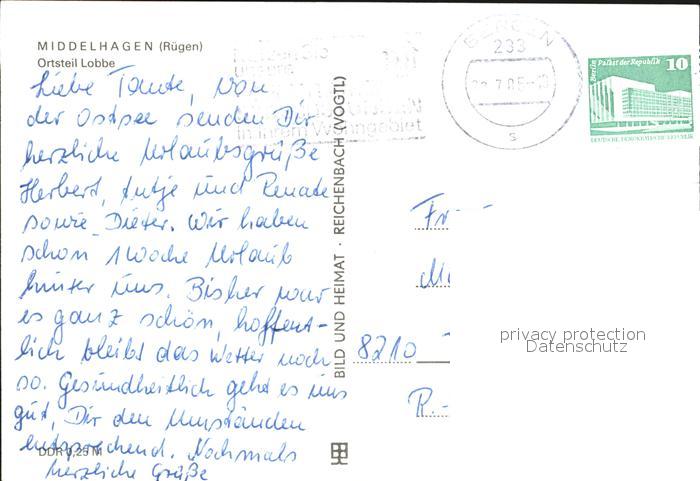 MIDDELHAGEN (Rügen)
Ortsteil Lobbe
Liebe Tante, von
der Ostsee senden Dir
herzliche Urlaubsgrüße
Herbert, Antje und Renate
sowie Dieter. Wir haben
schon 1 Woche Urlaub
hinter uns. Bisher war
es ganz schön, hoffent-
lich bleibt das Wetter noch
so. Gesundheitlich geht es uns
gut, Dir den Umständen
entsprechend. Nochmals
herzliche Grüße
DDR 0,25 M
BILD UND HEIMAT · REICHENBACH (VOGTL)
in Ihrem Wohngebiet
BERGEN
233
s
Berlin Palast der Republik 10
DEUTSCHE DEMOKRATISCHE REPUBLIK
8210
R.-
privacy protection
Datenschutz